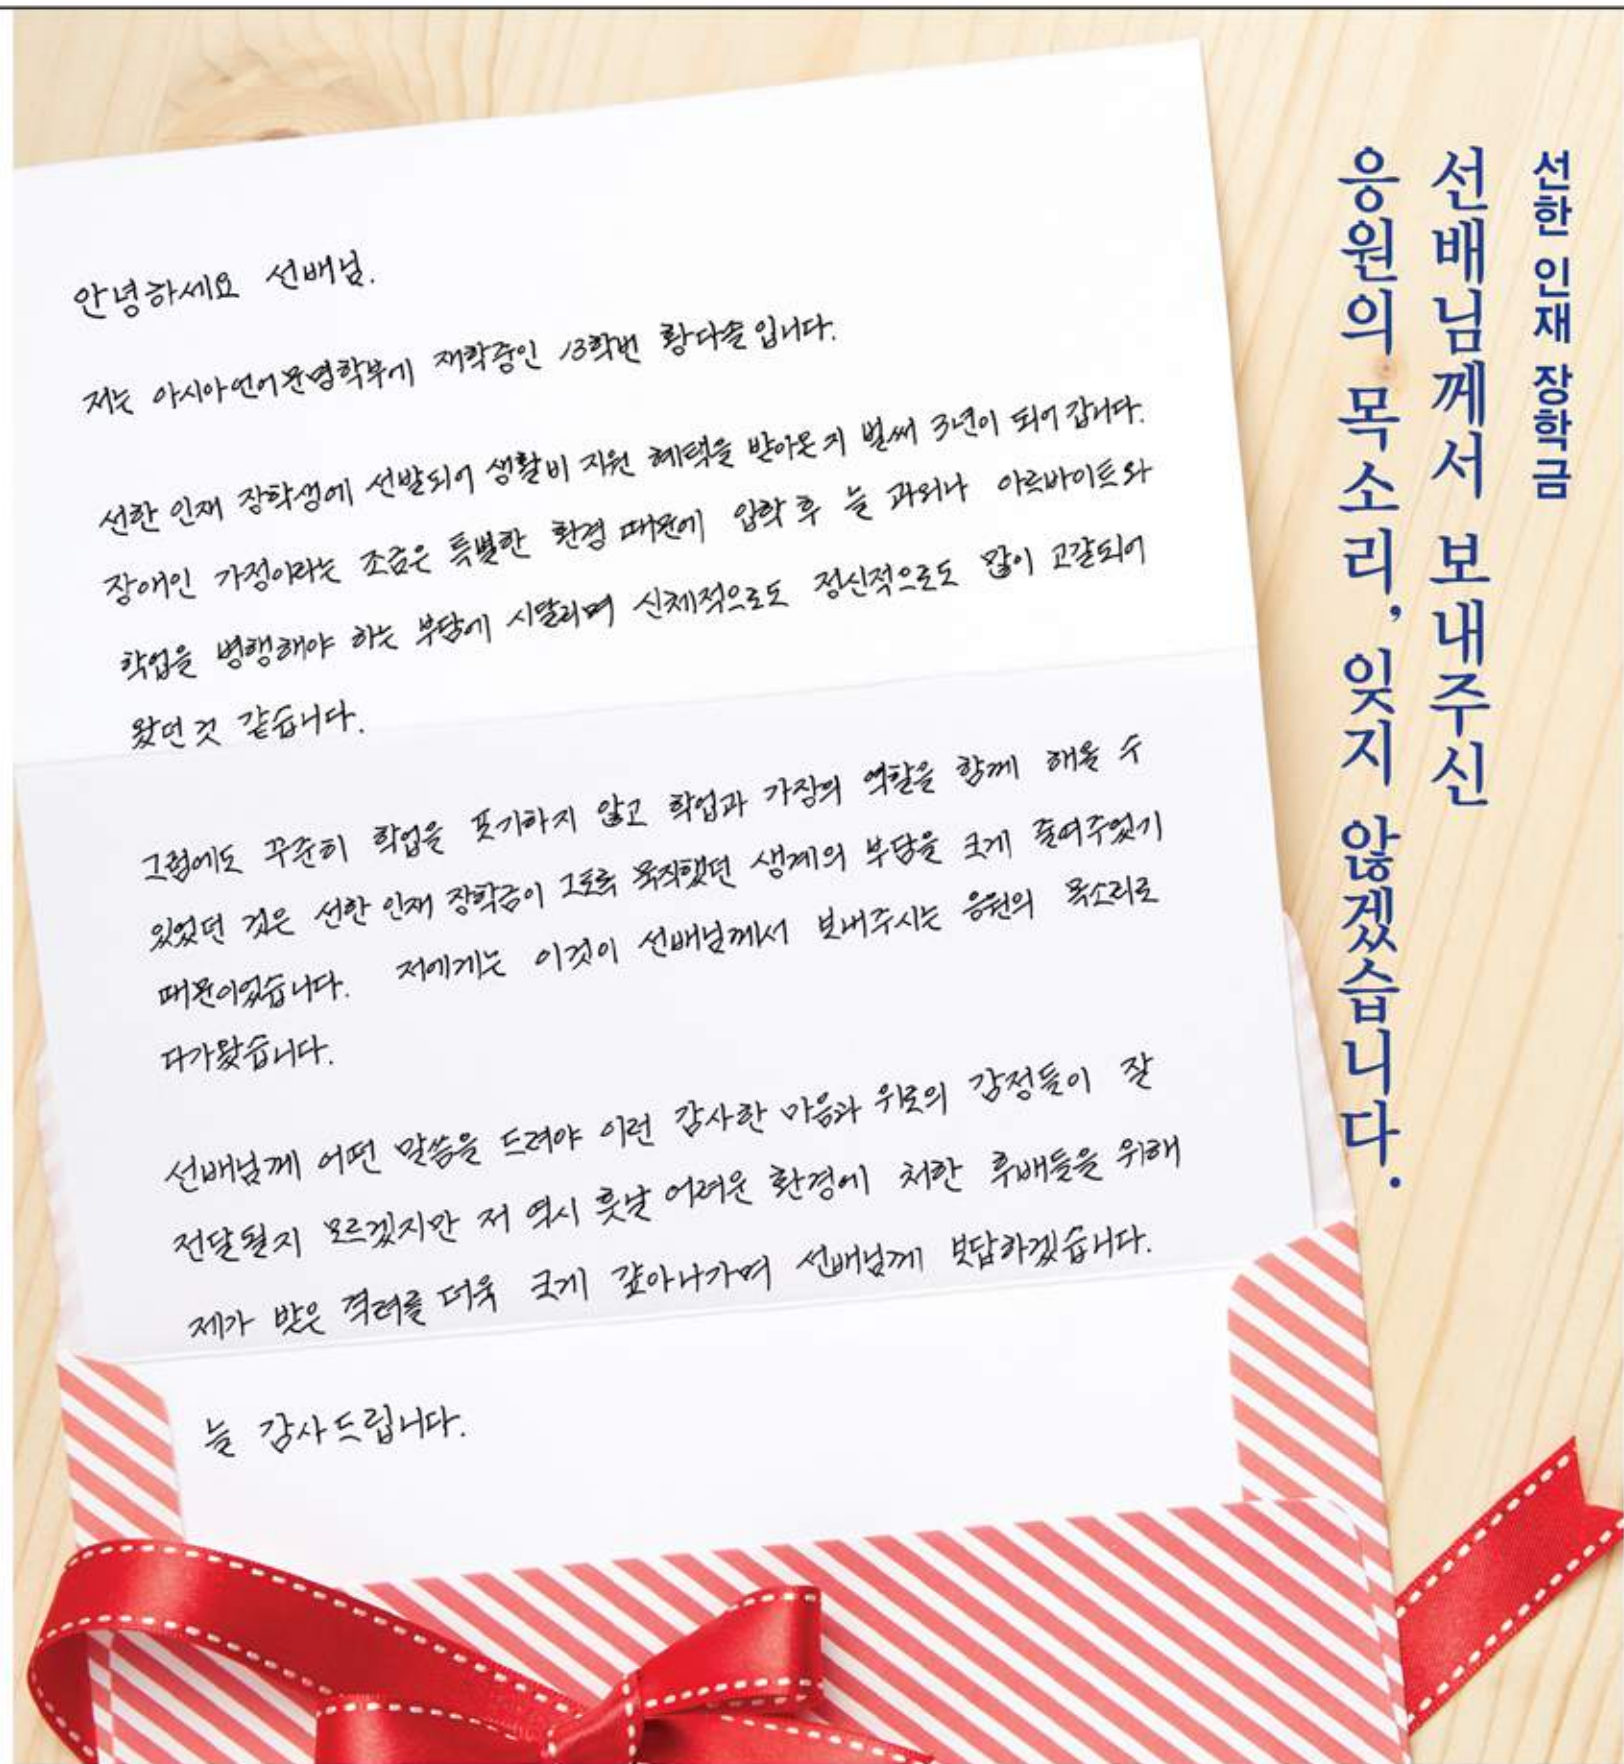 선한 인재 장학금
선배님께서 보내주신
응원의 목소리, 잊지 않겠습니다.
안녕하세요 선배님.
저는 아시아언어문명학부에 재학중인 13학번 황다솔입니다.
선한 인재 장학생에 선발되어 생활비 지원 혜택을 받아온지 벌써 3년이 되어 갑니다.
장애인 가정이라는 조금은 특별한 환경 때문에 입학 후 늘 과외나 아르바이트와
학업을 병행해야 하는 부담에 시달리며 신체적으로도 정신적으로도 많이 고갈되어
왔던 것 같습니다.
그럼에도 꾸준히 학업을 포기하지 않고 학업과 가장의 역할을 함께 해올 수
있었던 것은 선한 인재 장학금이 그토록 묵직했던 생계의 부담을 크게 줄여주었기
때문이었습니다. 저에게는 이것이 선배님께서 보내주시는 응원의 목소리로
다가왔습니다.
선배님께 어떤 말씀을 드려야 이런 감사한 마음과 위로의 감정들이 잘
전달될지 모르겠지만 저 역시 훗날 어려운 환경에 처한 후배들을 위해
제가 받은 격려를 더욱 크게 갚아나가며 선배님께 보답하겠습니다.
늘 감사드립니다.